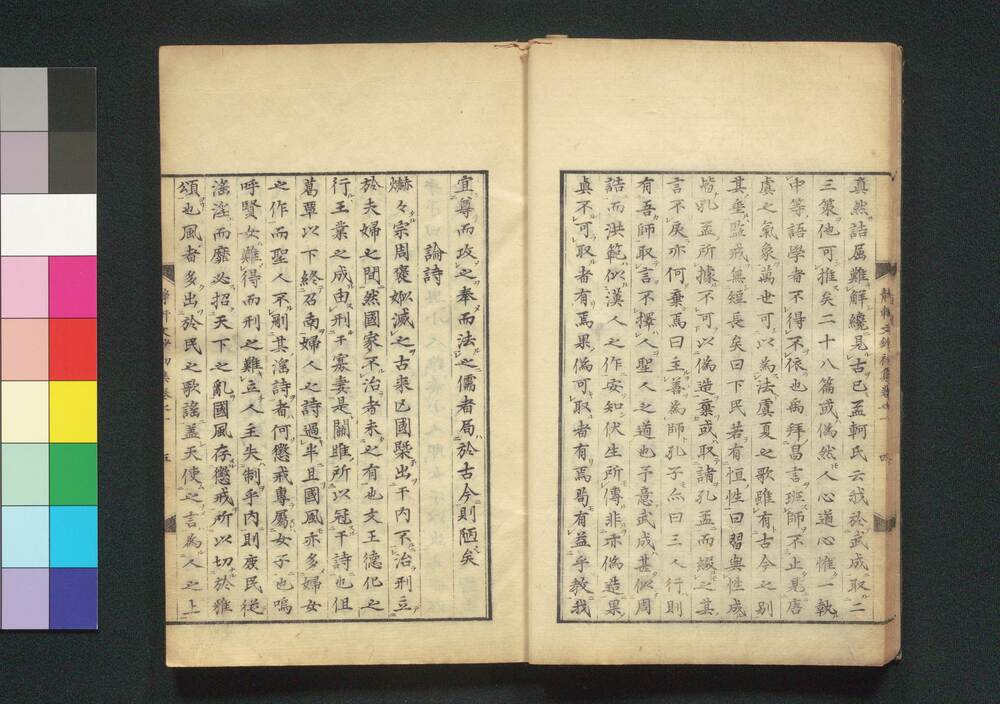 真然詰屈難解纔見古已孟軻氏云我於武成取二
三策他可推矣二十八篇或偽然人心道心惟一執
中等語學者不得不依也禹拜昌言班師不止見唐
虞之氣象萬世可以為法虞夏之歌雖有古今之別
其垂監戒無短長矣曰下民若有恒性曰習與性成
皆孔孟所據不可以偽造棄或取諸孔孟而綴之其
言不戻亦何棄焉曰主善為師孔子亦曰三人行則
有吾師取言不擇人聖人之道也予意武成甚似周
誥而洪範似漢人之作安知伏生所傳非亦偽造果
真不可取者有焉果偽可取者有焉苟有益乎教我
宜尊而攻之奉而法之儒者局於古今則陋矣
論詩
爀々宗周褒姒滅之古來亡國槩出于內不治刑立
於夫婦之間然國家不治者未之有也文王德化之
行王業之成由刑于寡妻是關雎所以冠于詩也但
葛覃以下終召南婦人之詩過半且國風亦多婦女
之作而聖人不刪其淫詩者何懲戒專屬女子也嗚
呼賢女難得而刑之難立人主失制乎內則庶民從
淫淫而靡必招天下之亂國風存懲戒所以切於雅
頌也風者多出於民之歌謠蓋天使之言為人之上